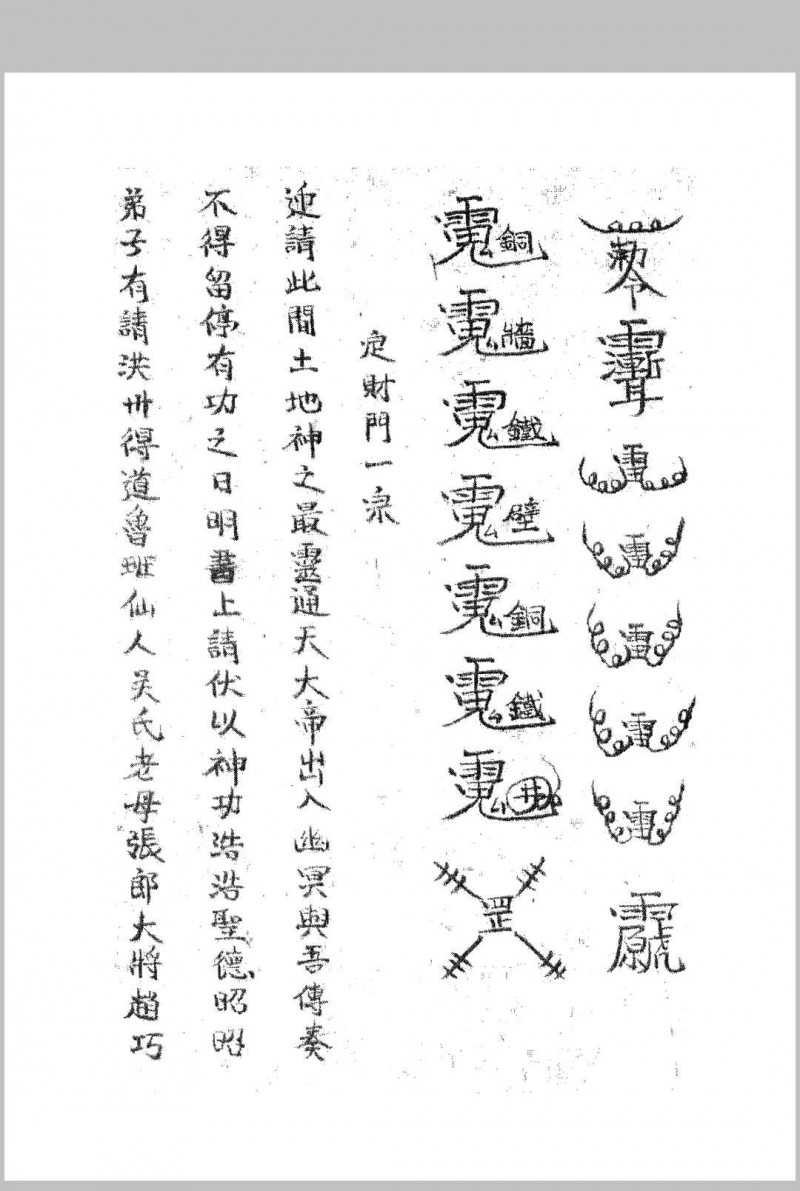 勅令
雷
雷
雷
雷
雷
銅
牆
鐵
壁
銅
鐵
井
罡
定財門一宗
迎請此間土地神之最靈通天大帝出入幽冥與吾傳奏
不得留停有功之日明書上請伏以神功浩浩聖德昭昭
弟子有請洪州得道魯班仙人吴氏老母張郎大將趙巧